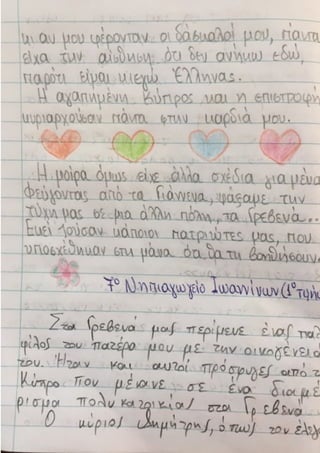 κι αν μου φέρονταν οι δάσκαλοί μου, πάντα
είχα την αίσθηση ότι δεν ανήκω εδώ,
παρότι είμαι κι εγώ Έλληνας.
Η αγαπημένη Κύπρος και η επιστροφή
κυριαρχούσαν πάντα στην καρδιά μου.
Η μοίρα όμως είχε άλλα σχέδια για μένα
Φεύγοντας από τα Γιάννενα, ψάξαμε την
τύχη μας σε μια άλλη πόλη, τα Γρεβενά...
Εκεί ζούσαν κάποιοι πατριώτες μας, που
υποσχέθηκαν στη μάνα ότι θα τη βοηθήσουν.
7ο Νηπιαγωγείο Ιωαννίνων (1ο τμήμ
Στα Γρεβενά μας περίμενε ένας παλ
φίλος του πατέρα μου με την οικογένειά
του. Ήταν και αυτοί πρόσφυγες από τ
Κύπρο που μέναν σε ένα διαμέ
ρισμα πολυκατοικίας στα Γρεβενά
Ο κύριος Δημήτρης, όπως τον έλεγ